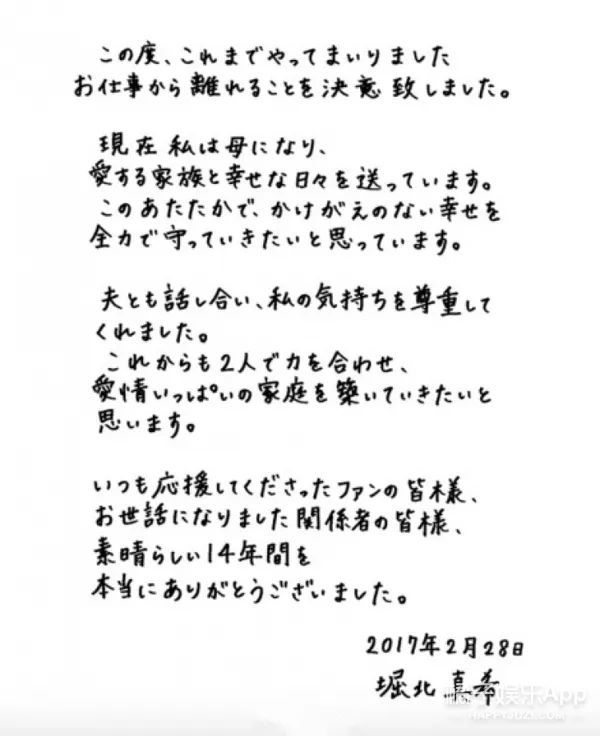 この度、これまでやってまいりました
お仕事から離れることを決意致しました。
現在 私は母になり、
愛する家族と幸せな日々を送っています。
このあたたかで、かけがえのない幸せを
全力で守っていきたいと思っています。
夫とも話し合い、私の気持ちを尊重して
くれました。
これからも2人で力を合わせ、
愛情いっぱいの家庭を築いていきたいと
思います。
いつも応援してくださったファンの皆様、
お世話になりました関係者の皆様、
素晴らしい14年間を
本当にありがとうございました。
2017年2月28日
堀北真希
娱乐App
HAPPYJUZI.COM